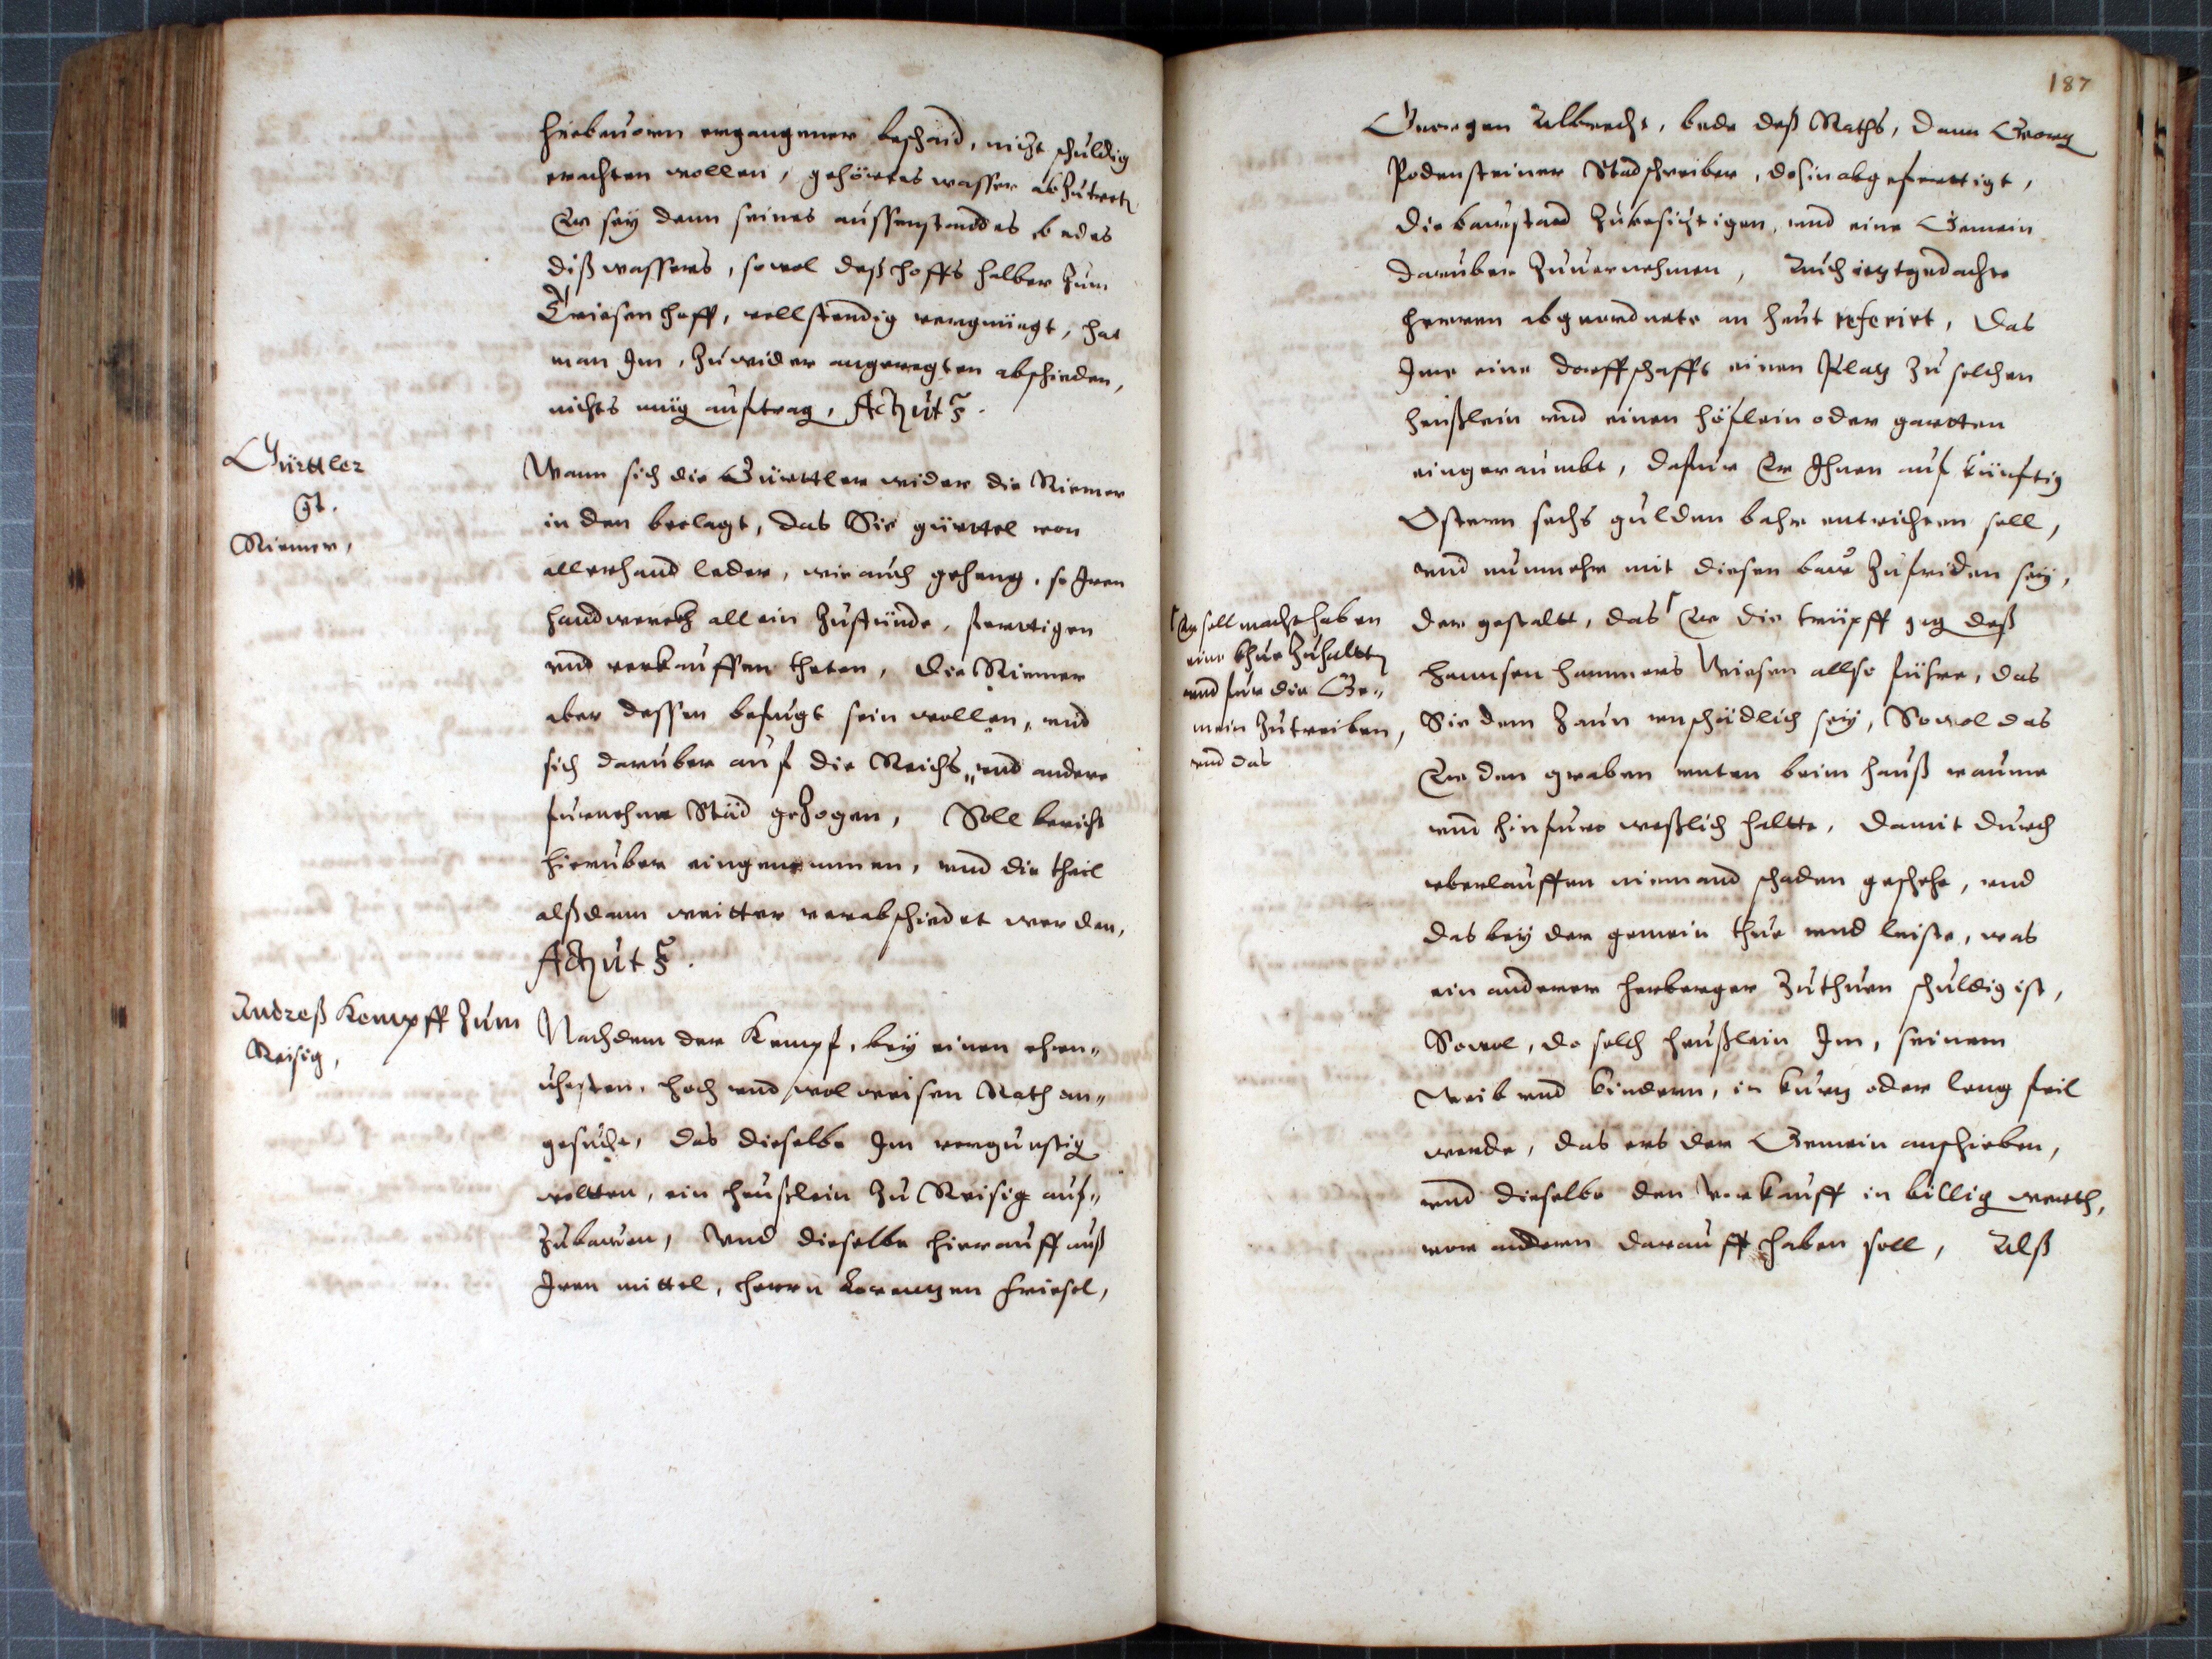 hiebeuorn ergangener beschaid, nicht schuldig
erachten wollen, gehörtes wasser abzutretn
Er sey dann seines aussenstanddes bedes
diß wassers, sowol deß hoffs halber zum
Triesenhoff, vollstendig vergnüegt, hat
man Im, zuwider angeregten abschieden,
nichts müg auftrag, Act ut s.
Gürttler
Ct.
Riemer,
Wann sich die Gürttler wider die Riemer
in den beclagt, das Sie gürttel von
allerhand leder, wie auch geheng, so Iren
handwerckh allein zustünde, fertigen
vnd verkauffen theten, die Riemer
aber dessen befuegt sein wollen, vnd
sich darüber auf die Reichs„ vnd andere
fürnehme Städ gezogen, Soll bericht
hierüber eingenommen, vnd die theil
alßdann weitter verabschiedet werden,
Act ut s.
Andreß Kempff zum
Reisig,
Nachdem der Kempf, bey einen ehrn„
uhesten, hoch vnd wolweisen Rath an„
gesucht, das dieselbe Im vergünstig
wolten, ein heußlein zu Reisig auf„
zubawen, Vnd dieselbe hierauff auß
Iren mittel, herrn Lorentzen Friesel,
187
Georgen Albrecht, bede deß Raths, dann Georg
Podensteiner Stadschreiber, dohin abgefertigt,
die bawstad zubesichtigen, vnd eine Gemein
darüber zuuernehmen, Auch ietztgedachte
herren abgeordnete an heut referirt, das
Ime eine dorffschafft einen Platz zu solchen
heußlein vnd einen höflein oder gartten
eingeraumbt, dafür Er Ihnen auf künftig
Ostern sechs gulden bahr entrichten soll,
vnd nunmehr mit diesen baw zufriden sey,
der gestaltt, das Er die trüpff geg deß
Er soll macht haben
eine khue zuhaltn
vnd für die Ge„
mein zutreiben,
vnd das
hannsen hammers Wiesen allso führe, das
Sie dem zaun vnschädlich sey, Sowol das
Er den graben vnten beim hauß raume
vnd hinfüro weßlich haltte, damit durch
vberlauffen niemand schaden geschehe, vnd
das bey der gemein thue vnd leiste, was
ein anderer herberger zuthuen schuldig ist,
Sowol, do solch heußlein Im, seinem
Weib vnd kindern, in kurtz oder leng feil
werde, das ers der Gemein anschieben,
vnd dieselbe den Vorkauff in billig werth,
vor andern darauff haben soll, Alß